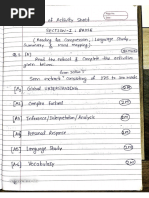 of Activity Sheet
SECTION-I : PROSE
(Reading for Comprehension, Language Study,
Summary & Mind Mapping)
Q.1. (A) Read the extract & Complete the activities
given below.
Seen extract consisting of 275 to 300 words
[A1] Global Understanding 2M
[A2] Complex Factual 2M
[A3] Inference/Interpretation/Analysis 2M
[A4] Personal Response 2M
[A5] Language Study 2M
[A6] Vocabulary 2M